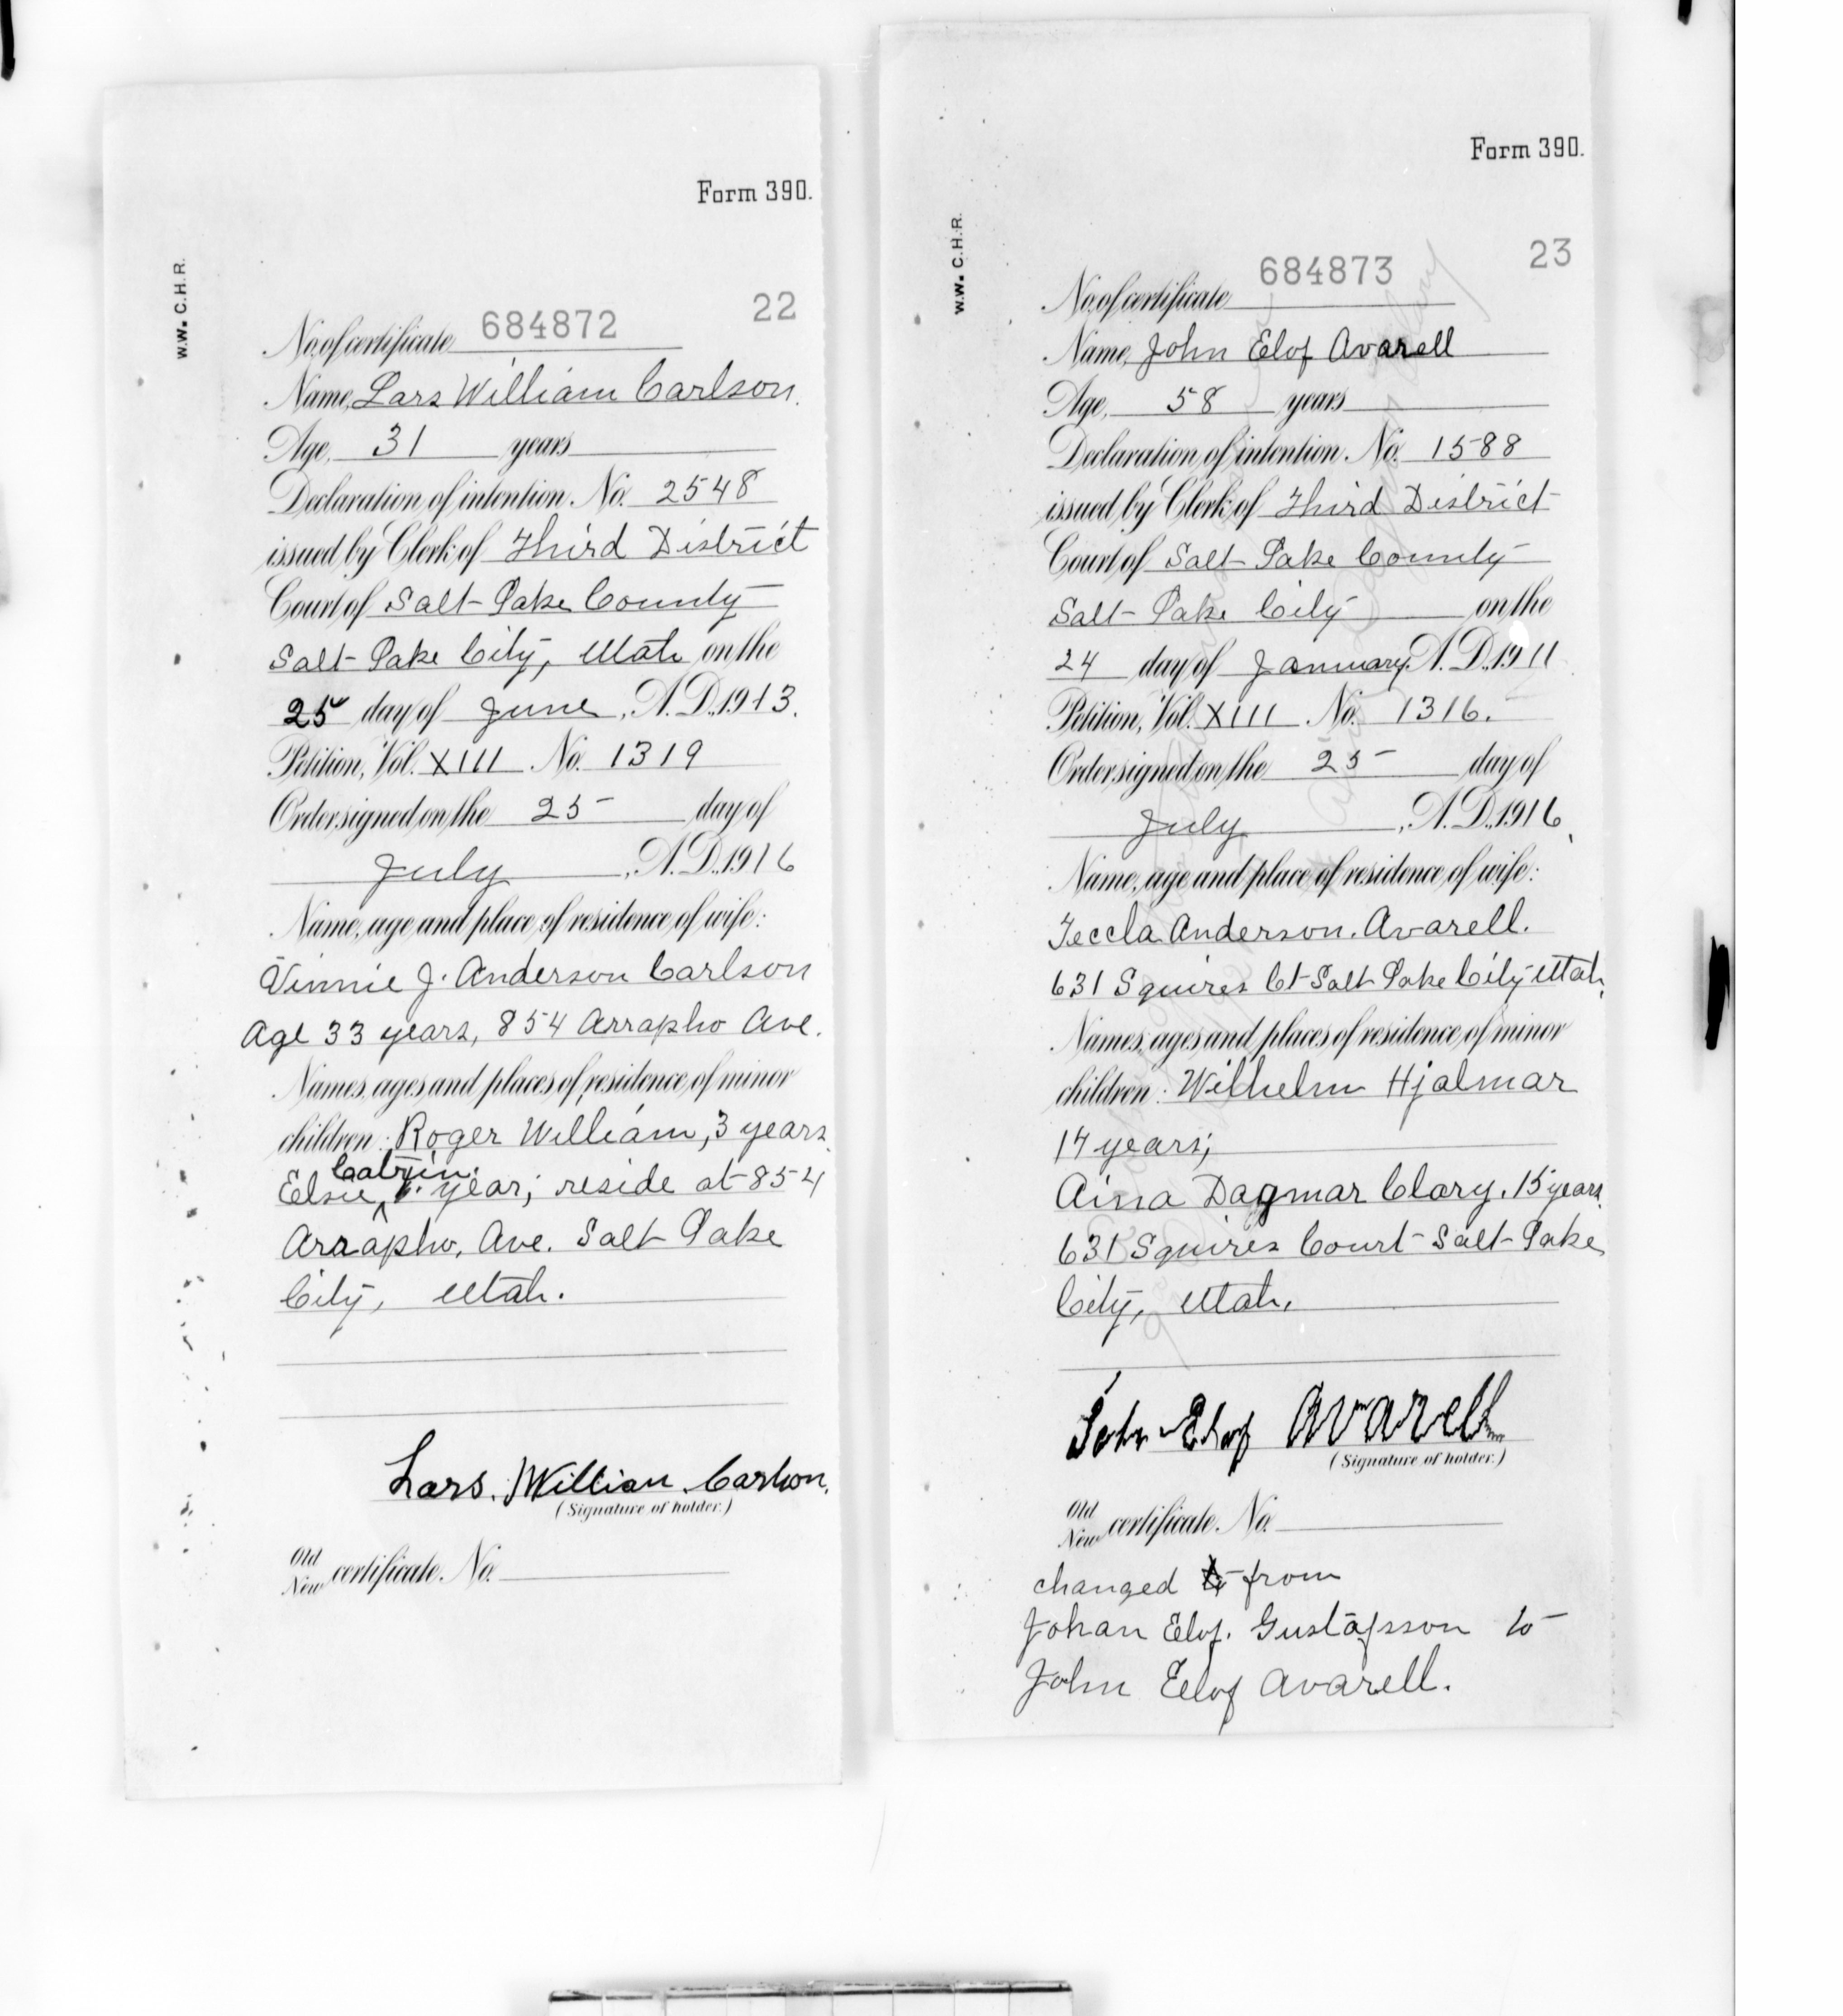 Form 390.
W.W. C.H.R.
22
No. of certificate 684872
Name, Lars William Carlson.
Age, 31 years
Declaration of intention. No. 2548
issued by Clerk of Third District
Court of Salt Lake County
Salt Lake City, Utah on the
25 day of June, A.D. 1913.
Petition, Vol. XIII No. 1319
Order signed on the 25 day of
July, A.D. 1916
Name, age and place of residence of wife:
Vinnie J. Anderson Carlson
Age 33 years, 854 Arrapho Ave.
Names, ages and places of residence of minor
children: Roger William, 3 years.
Catrin.
Elsie, 1. year; reside at 854
Arrapho, Ave. Salt Lake
City, Utah.
Lars. William Carlson.
(Signature of holder.)
Old
New certificate. No.
Form 390.
W.W. C.H.R.
23
No. of certificate 684873
Name, John Elof Avarell
Age, 58 years
Declaration of intention. No. 1588
issued by Clerk of Third District
Court of Salt Lake County
Salt Lake City on the
24 day of January A.D. 1911
Petition, Vol. XIII No. 1316.
Order signed on the 25 day of
July, A.D. 1916.
Name, age and place of residence of wife:
Teccla Anderson. Avarell.
631 Squires Ct Salt Lake City Utah.
Names, ages and places of residence of minor
children: Wilhelm Hjalmar
17 years;
Aina Dagmar Clary. 15 years.
631 Squires Court Salt Lake
City, Utah.
John Elof Avarell
(Signature of holder.)
Old
New certificate. No.
changed from
Johan Elof. Gustafsson to
John Eelof Avarell.